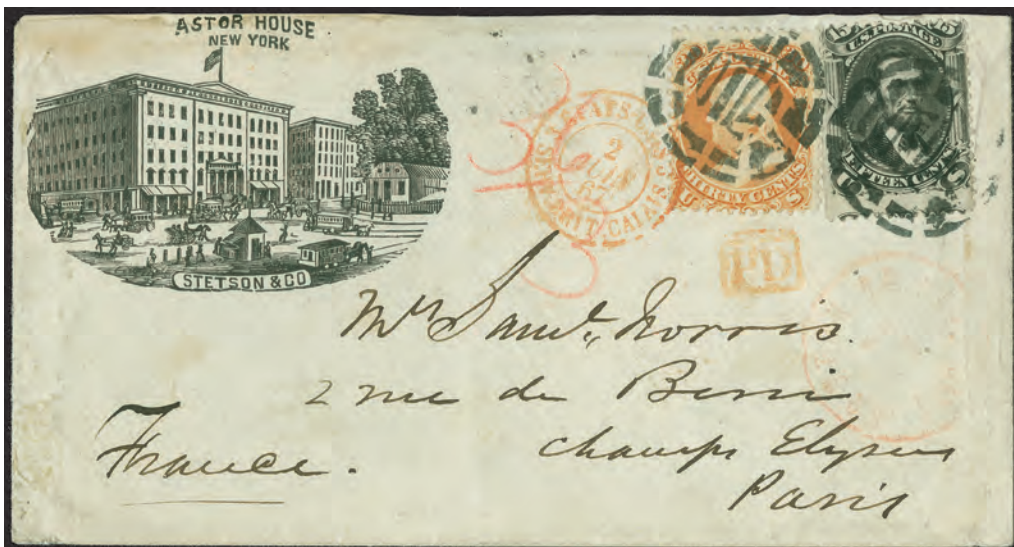 ASTOR HOUSE
NEW YORK
STETSON & CO
U.S. POSTAGE
FIFTEEN CENTS
THIRTY CENTS
2
CALAIS
PD
Mr Saml. Norris.
2 rue de Berri
Champs Elysees
Paris
France.